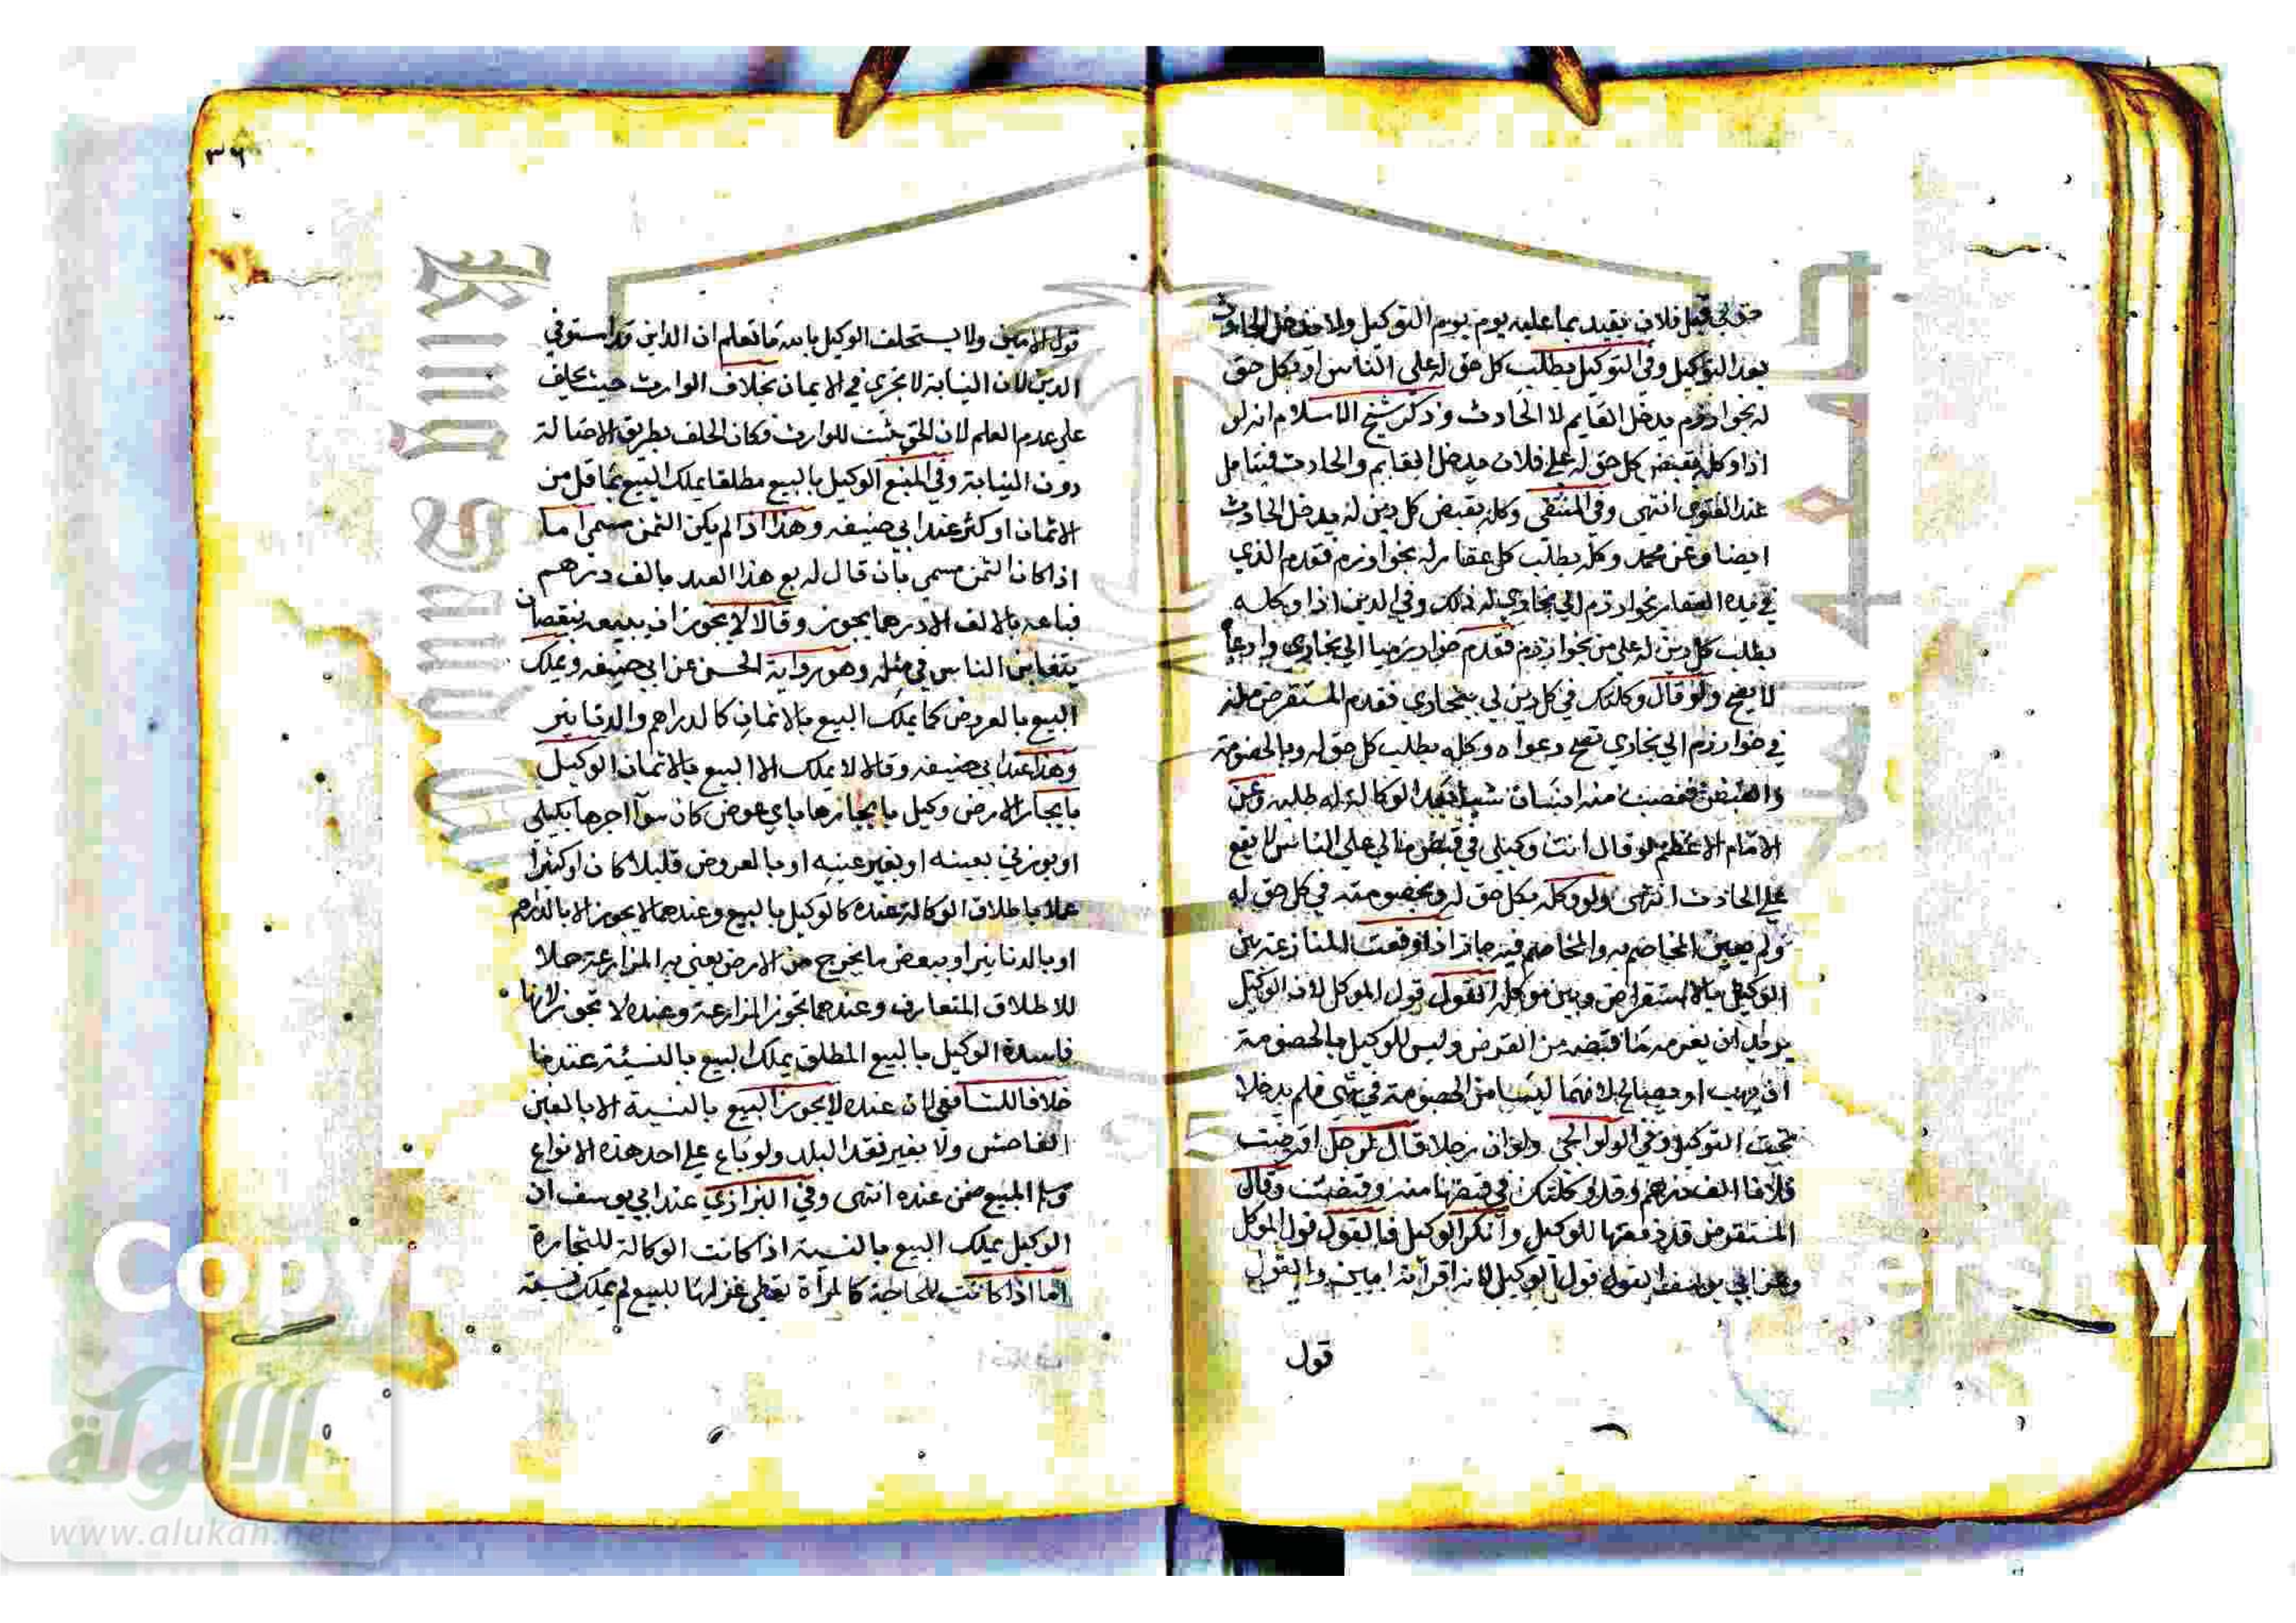 حق لي قبل فلان يقيد بما عليه يوم يوم التوكيل ولا يدخل الحادث
بعد التوكيل وفي التوكيل بطلب كل حق له على الناس او بكل حق
له بخوارزم يدخل القايم لا الحادث وذكر شيخ الاسلام انه لو
اذا وكله بقبض كل حق له على فلان يدخل القايم والحادث فيتامل
عند الفتوى انتهى وفي المنتقى وكله بقبض كل دين له يدخل الحادث
ايضا وعن محمد وكله بطلب كل عقار له بخوارزم فقدم الذي
في يده العقار بخوارزم الي بخاري له ذلك وفي الدين اذا وكله
بطلب كل دين له على من بخوارزم فقدم خوارزميا الي بخاري وادعا
لا يصح ولو قال وكلتك في كل دين لي ببخاري فقدم المستقرض منه
في خوارزم الي بخاري تصح دعواه وكله بطلب كل حق له وبالخصومة
والقبض فغصب منه انسان شيا بعد الوكالة له طلبه وعن
الامام الاعظم لو قال انت وكيلي في قبض مالي على الناس لا يقع
على الحادث انتهى ولو وكله بكل حق له وبخصومته في كل حق له
ولم يعين المخاصم به والمخاصم فيه جاز اذا وقعت المنازعة بين
الوكيل بالاستقراض وبين موكله القول قول الموكل لان الوكيل
يريد ان يغرمه ما قبضه من القرض وليس للوكيل بالخصومة
ان يهب او يصالح لانهما ليسا من الخصومة في شي فلم يدخلا
تحت التوكيل وفي الولوالجي ولو ان رجلا قال لرجل اقرضت
فلانا الف درهم وقد وكلتك في قبضها منه وقبضت وقال
المستقرض قد دفعتها للوكيل وانكر الوكيل فالقول قول الموكل
وعن ابي يوسف القول قول الوكيل لانه اقر انه امين والقول
قول
٣٦
قول الامين ولا يستحلف الوكيل بالله ما تعلم ان الداين قد استوفي
الدين لان النيابة لا تجري في الايمان بخلاف الوارث حيث يحلف
علي عدم العلم لان الحق يثبت للوارث فكان الحلف بطريق الاصالة
دون النيابة وفي المنبع الوكيل بالبيع مطلقا يملك البيع بما قل من
الاثمان او كثر عند ابي حنيفه وهذا اذا لم يكن الثمن مسمى اما
اذا كان الثمن مسمى بان قال له بع هذا العبد بالف درهم
فباعه بالالف الا درهما يجوز وقالا لا يجوز ان يبيعه بنقصان
يتغابن الناس في مثله وهو رواية الحسن عن ابي حنيفه ويملك
البيع بالعروض كما يملك البيع بالاثمان كالدراهم والدنانير
وهذا عند ابي حنيفه وقالا لا يملك الا البيع بالاثمان الوكيل
بايجار الارض وكيل بايجارها باي عوض كان سوآ اجرها بكيلي
او بوزني بعينه او بغير عينه او بالعروض قليلا كان او كثيرا
عملا باطلاق الوكالة عنده كالوكيل بالبيع وعندهما لا يجوز الا بالدراهم
او بالدنانير او ببعض ما يخرج من الارض يعني به المزارعة حملا
للاطلاق المتعارف وعندهما تجوز المزارعة وعنده لا تجوز لانها
فاسدة الوكيل بالبيع المطلق يملك البيع بالنسيئة عندنا
خلافا للشافعي لان عنده لا يجوز البيع بالنسية الا بالغبن
الفاحش ولا بغير نقد البلد ولو باع علي احد هذه الانواع
وسلم المبيع ضمن عنده انتهى وفي البزازي عند ابي يوسف ان
الوكيل يملك البيع بالنسية اذا كانت الوكالة للتجارة
اما اذا كانت للحاجة كالمرأة تعطي غزلها للبيع لم يملك نسية
الألوكة
www.alukah.net